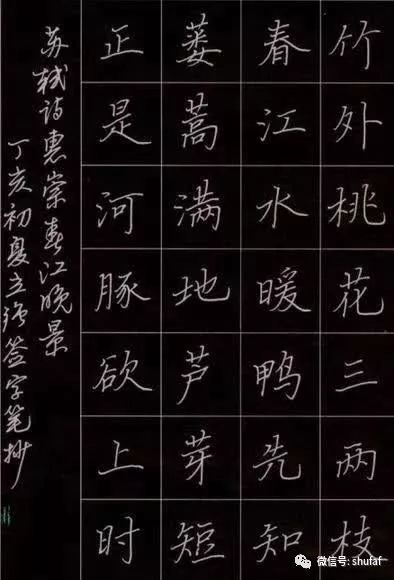 竹外桃花三两枝
春江水暖鸭先知
蒌蒿满地芦芽短
正是河豚欲上时
苏轼诗惠崇春江晚景
丁亥初夏立签字笔抄
微信号: shufaf